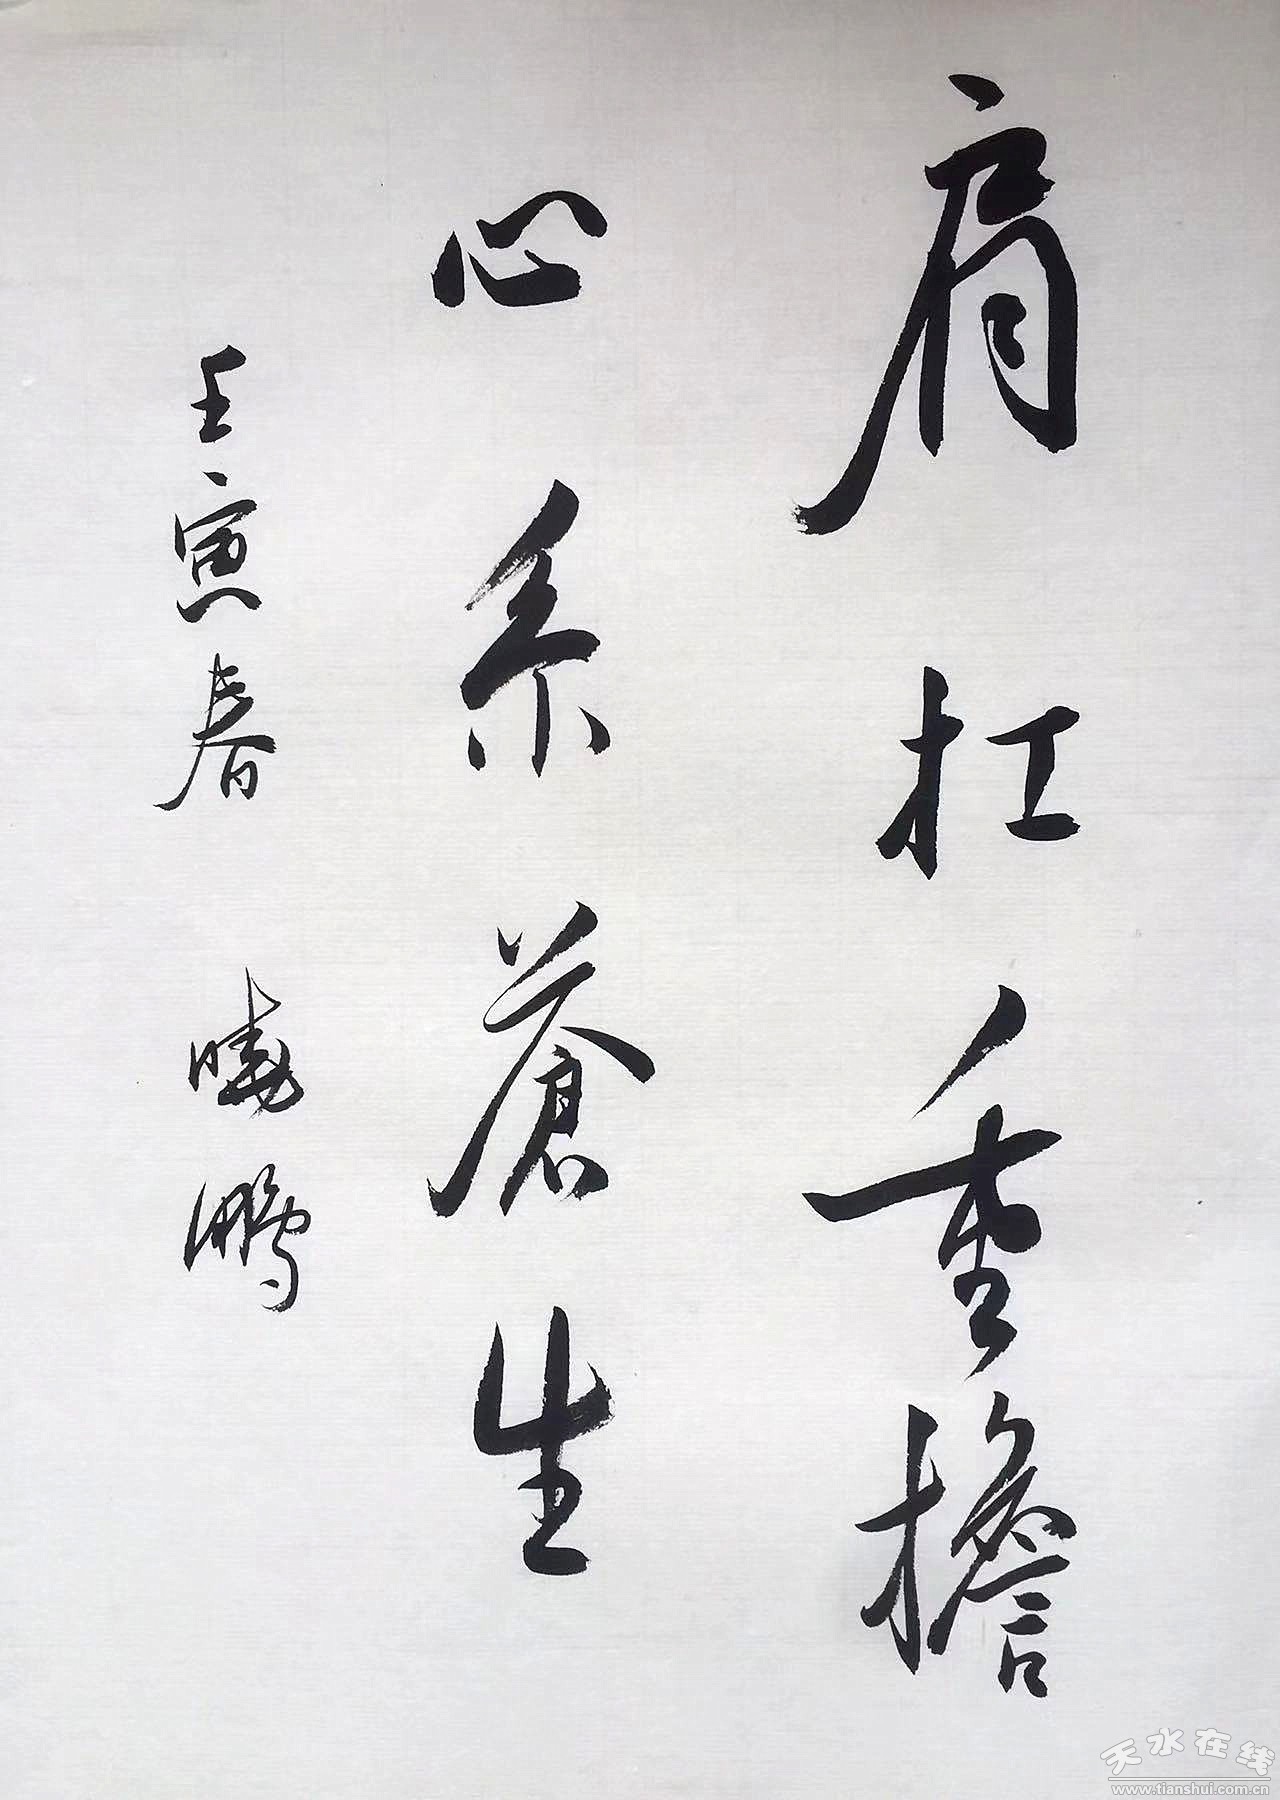 肩扛重擔
心系蒼生
壬寅春 曉鵬
天水在线
www.tianshui.com.cn